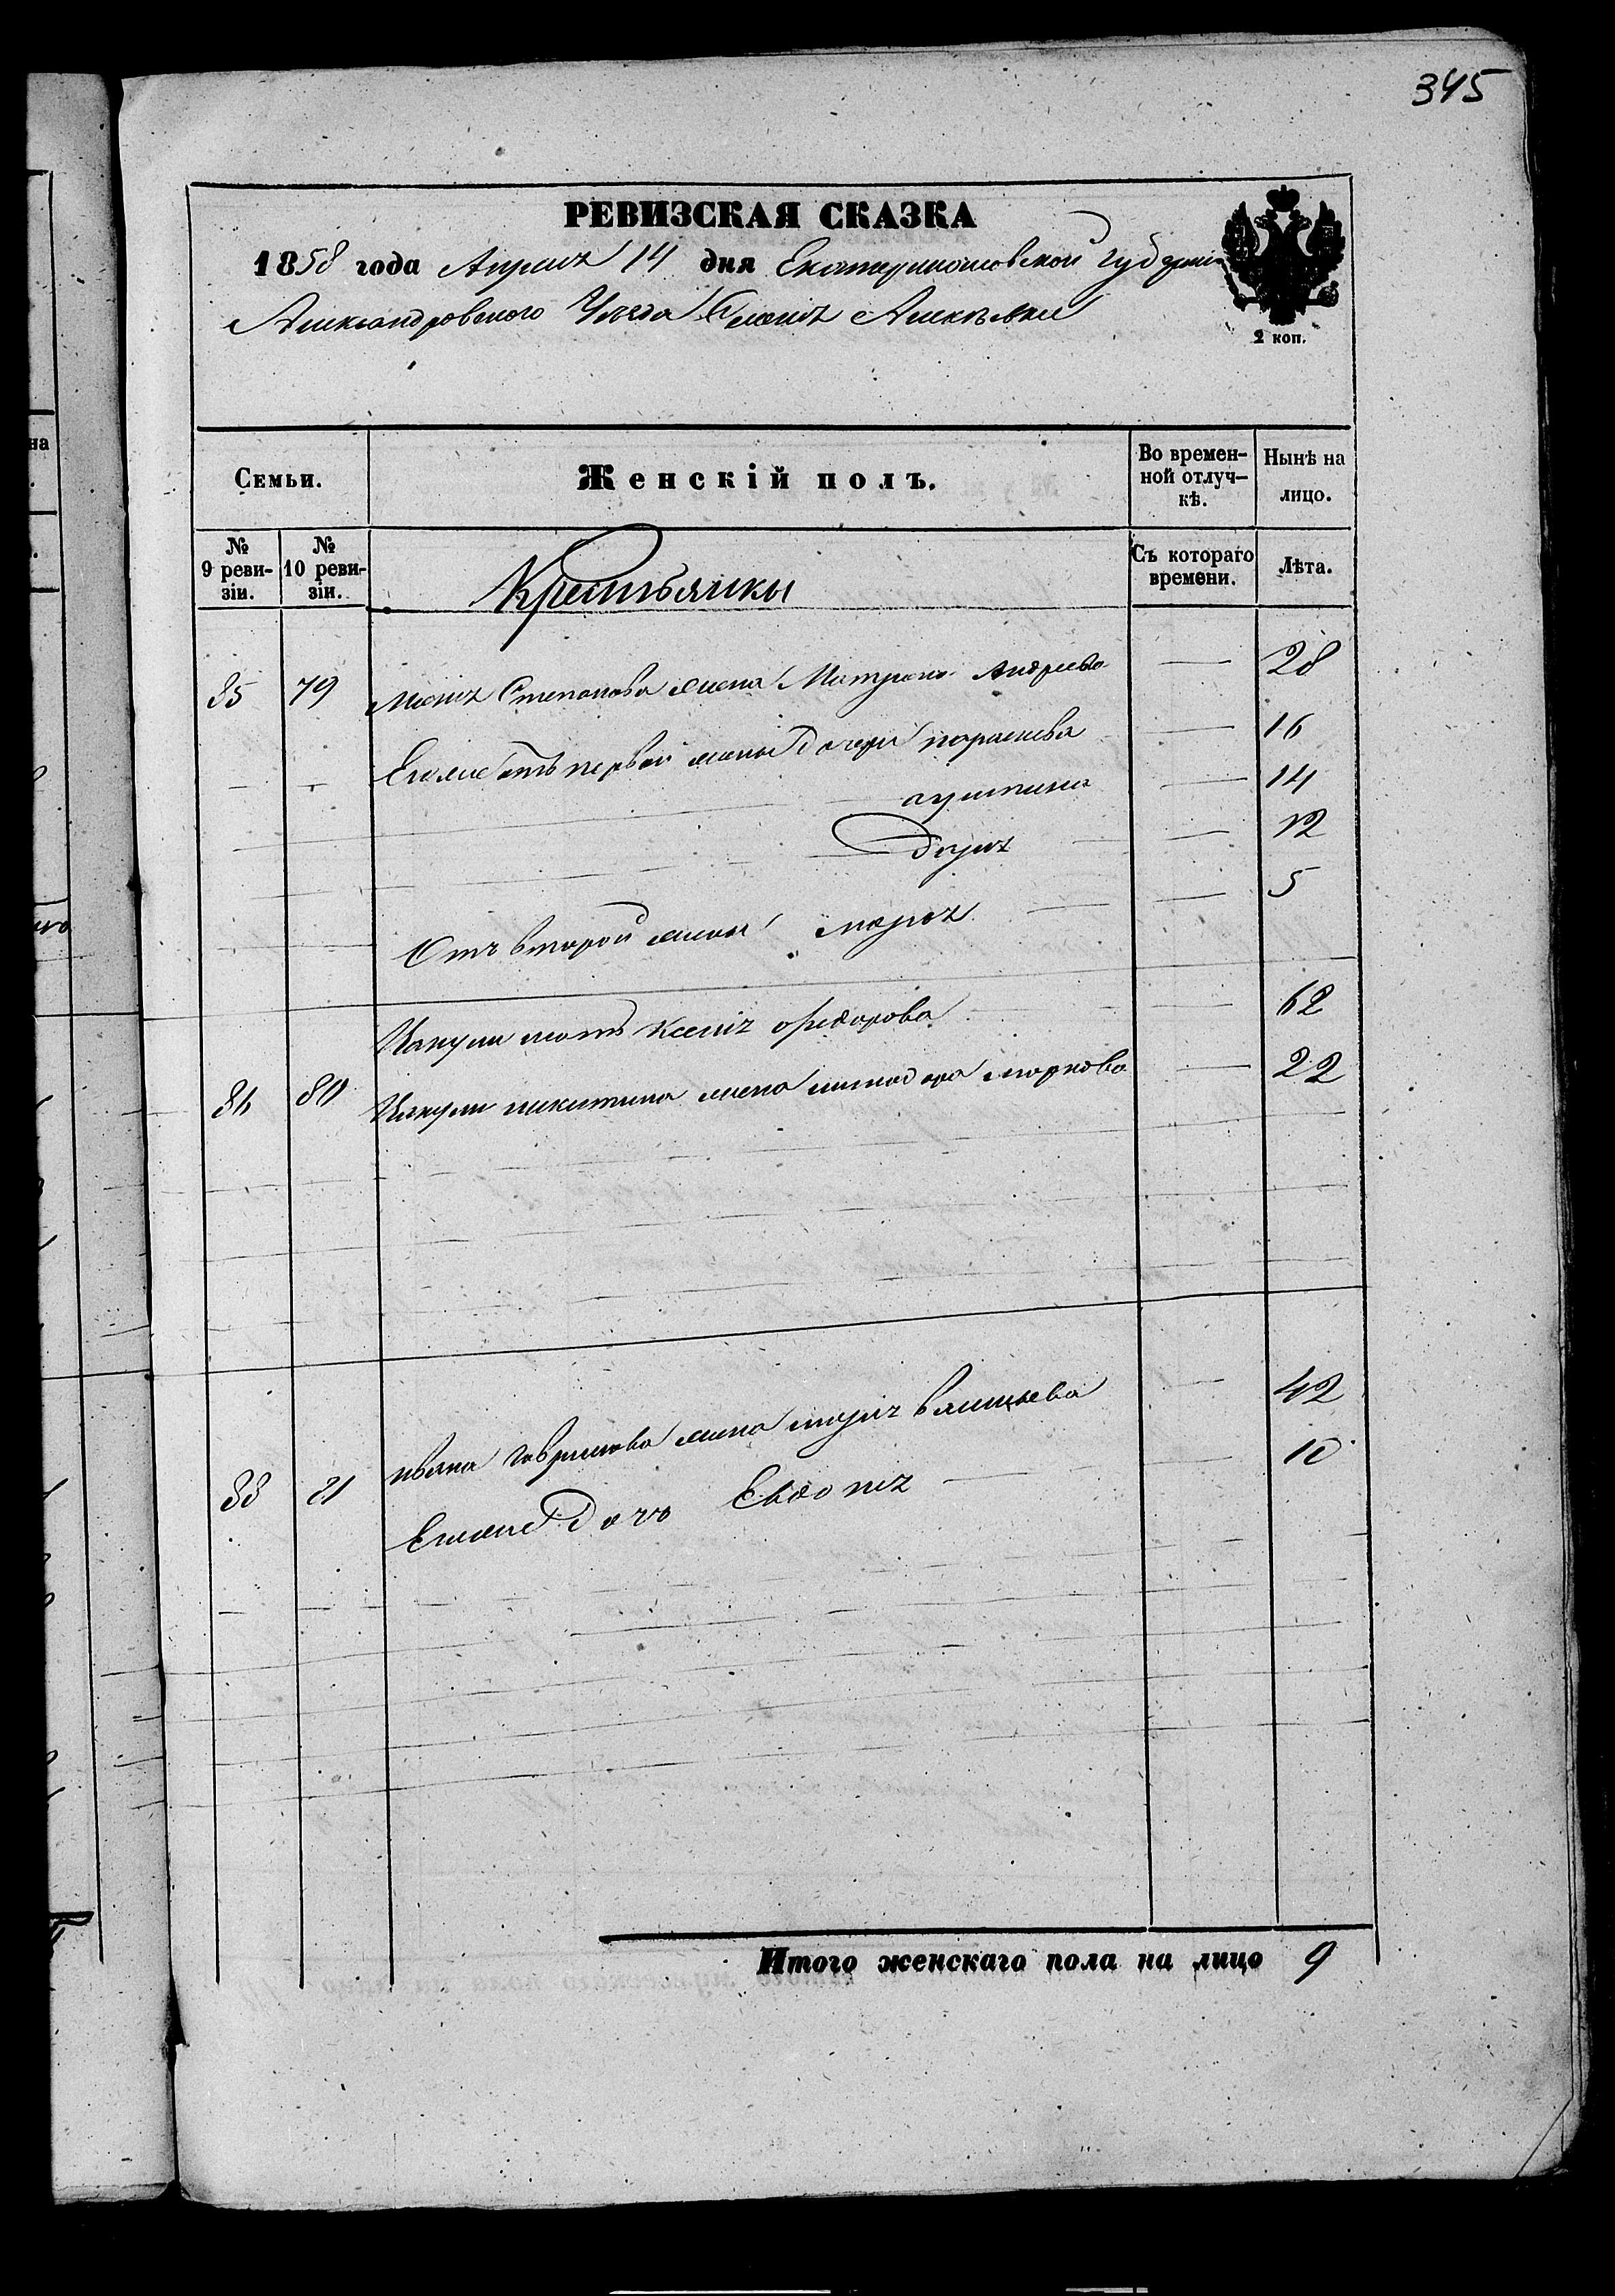 345
РЕВИЗСКАЯ СКАЗКА
1858 года Апреля 14 дня Екатеринославской Губернии
Александровского Уезда
2 коп.
Семьи.
Женскій полъ.
Во времен-
ной отлуч-
кѣ.
Нынѣ на
лицо.
№
9 реви-
зіи.
№
10 реви-
зіи.
Крестьянки
Съ котораго
времени.
Лѣта.
85 79 Степанова жена Матрона Андреева — 28
Его же отъ первой жены дочери параскева — 16
— 14
Дарья — 12
Отъ второй жены марья — 5
мать Ксенія федорова — 62
80 никитина жена маркова — 22
88 81 ивана гаврилова жена марья — 42
Его же дочь Евдокія — 10
Итого женскаго пола на лицо 9
на